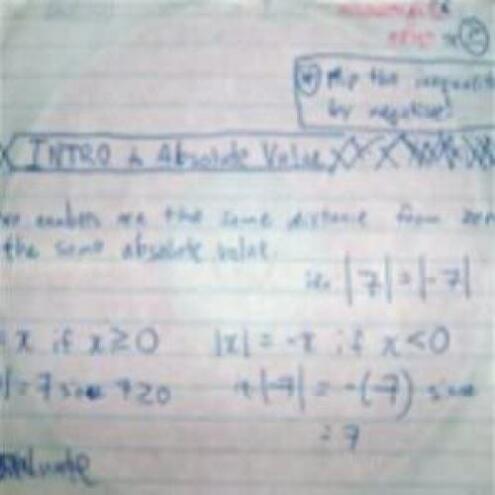 flip the inequalit
by negative
INTRO to Absolute Value
numbers are the same distance from zer
the same absolute value.
ie. |7| = |-7|
x if x ≥ 0 |x| = -x if x < 0
| = 7 since 7 ≥ 0 |-7| = -(-7) since
= 7